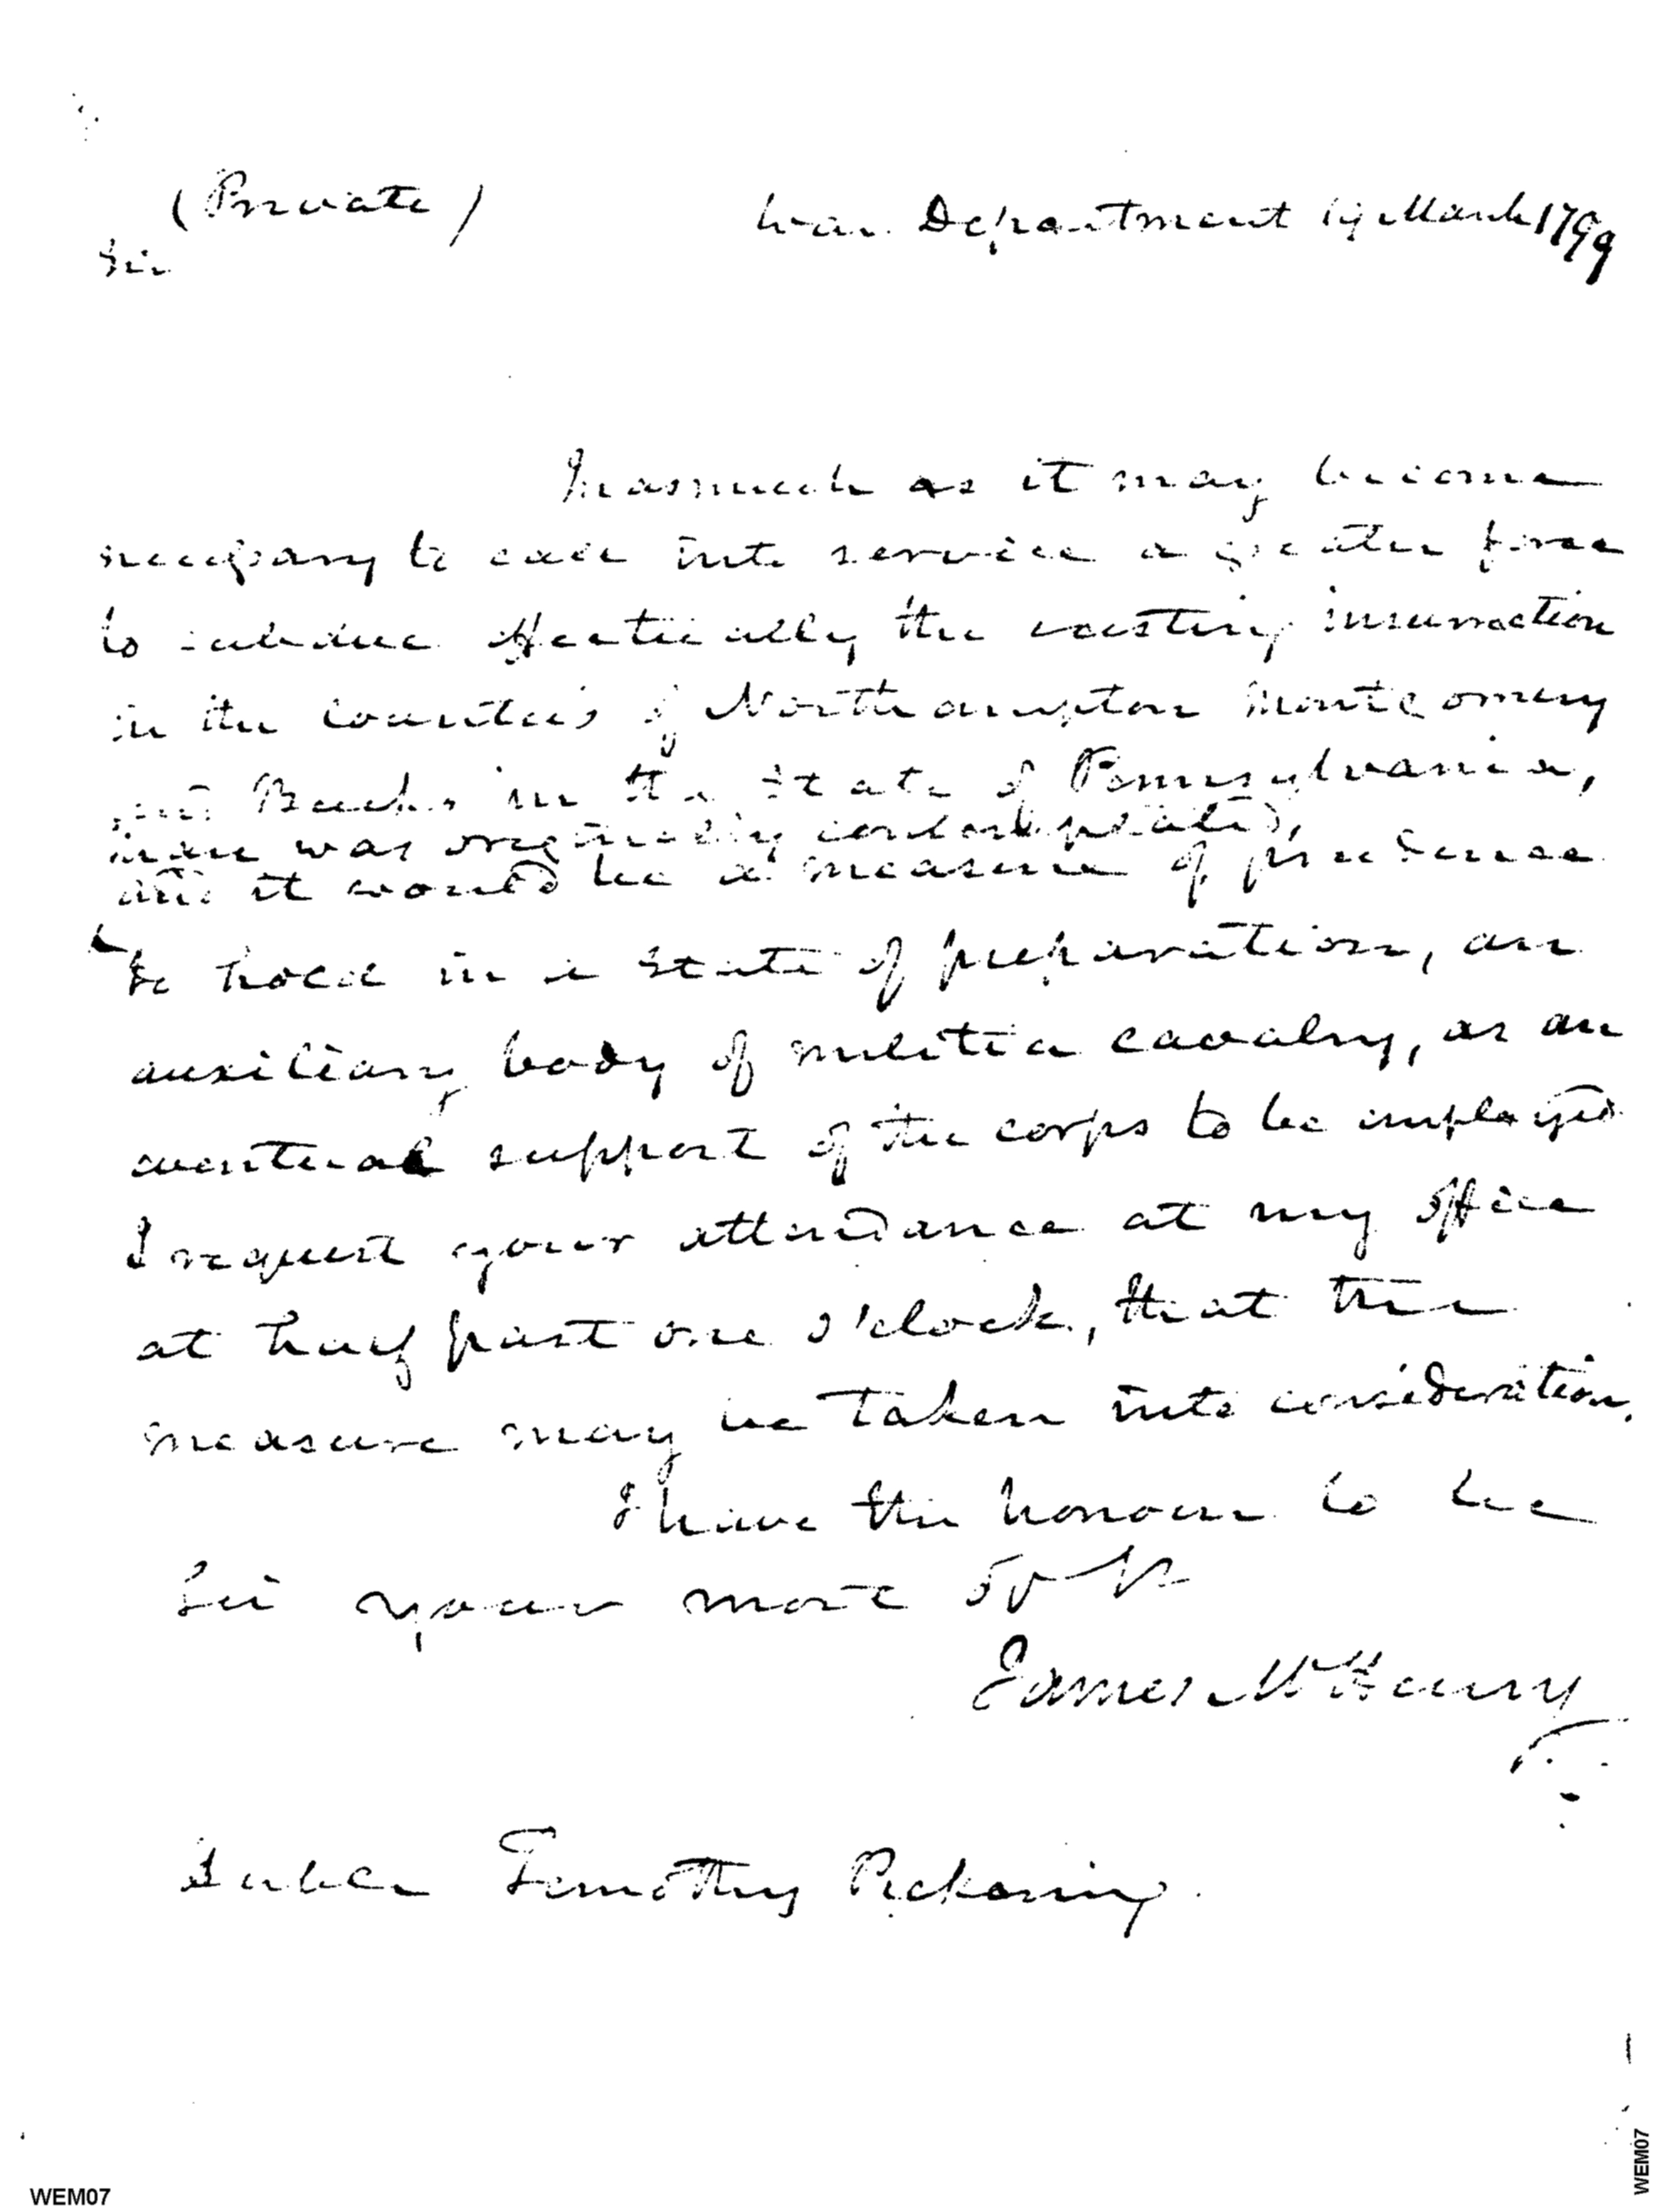 (Private)
War Department 19 March 1799
Sir
Inasmuch as it may become
necessary to call into service a greater force
to subdue effectually the existing insurrection
in the Counties of Northampton Montgomery
and Bucks in the State of Pennsylvania,
than was originally contemplated,
and it would be a measure of prudence
to hold in a state of preparation, an
auxiliary body of militia cavalry, as an
eventual support of the corps to be employed
I request your attendance at my office
at half past one o'clock, that the
measure may be taken into consideration.
I have the honour to be
Sir your most
James McHenry
Timothy Pickering.
WEM07
WEM07